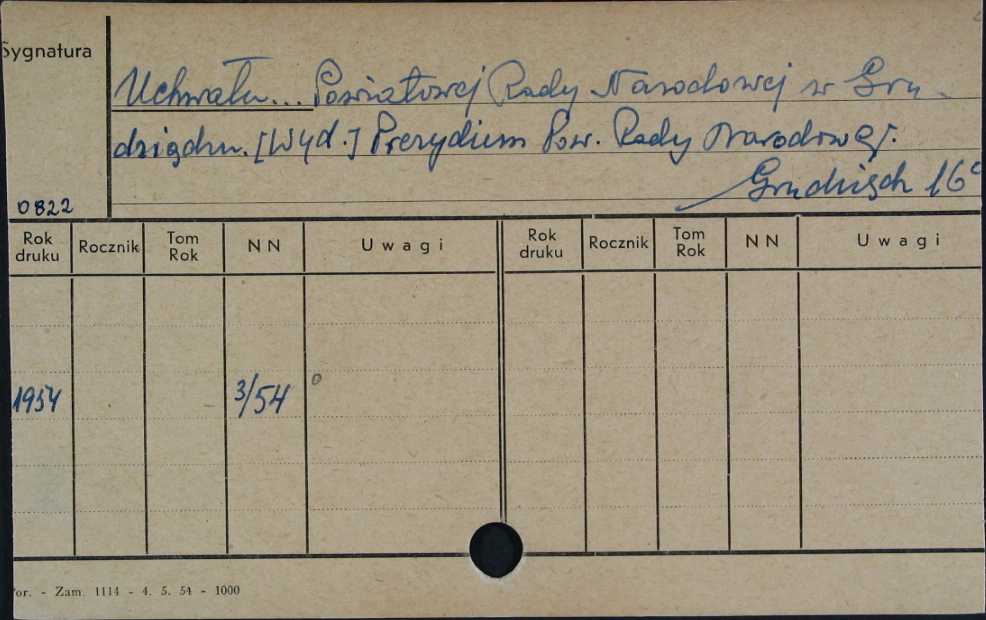 Sygnatura
Uchwała... Powiatowej Rady Narodowej w Gru-
dziądzu. [Wyd.] Prezydium Pow. Rady Narodowej.
Grudziądz 16°
0822
Rok druku Rocznik Tom Rok NN Uwagi Rok druku Rocznik Tom Rok NN Uwagi
1954 3/54
or. - Zam. 1114 - 4. 5. 54 - 1000